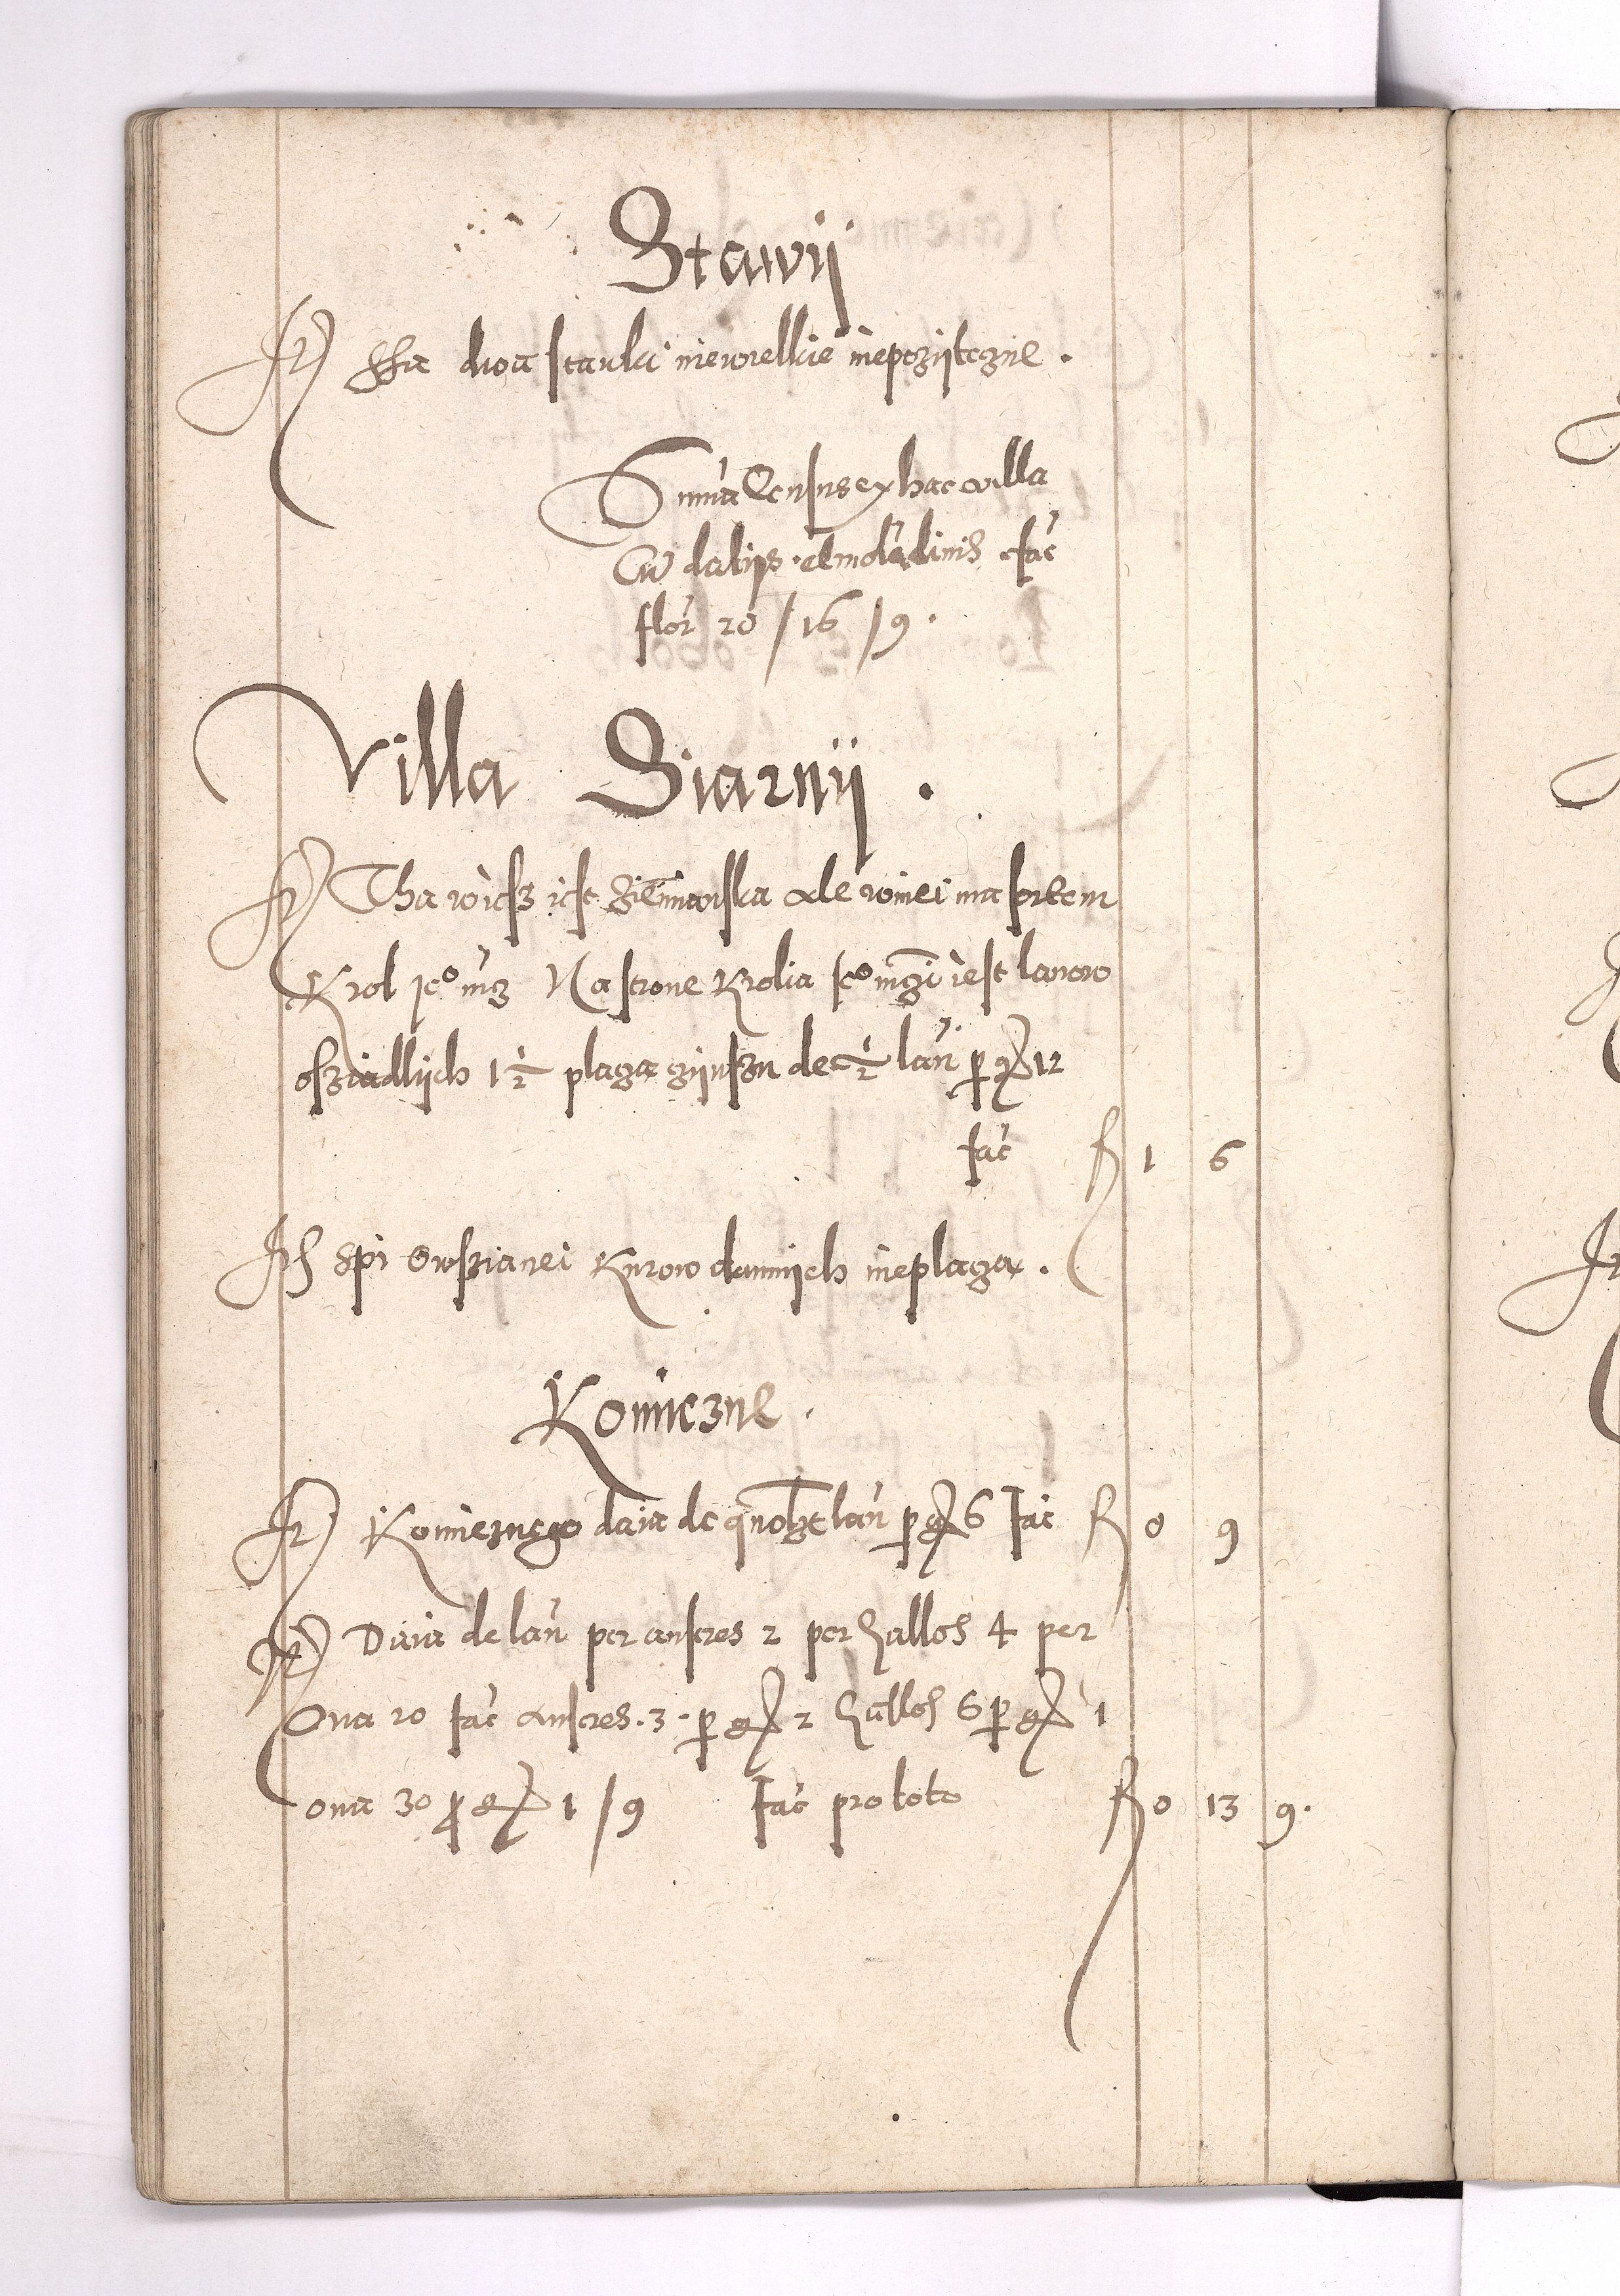 Stawÿ
It) Ssa dwa stawki niewielkie niepożÿteczne .
Suma Census ex hac villa
Cu datijs et moledinis fac
flor 20 / 16 / 9 .
Villa Siarnÿ .
It) Tha wiesz iest ziemianska ale w niei ma sortem
Krol Jeo mcz Na strone Krolia Jeo mczi iest lanow
osziadlÿch 1½ placza czÿnszu de ½ lan p gr 12
fac fl 1 6
It Spi Owszianei Kurow dannÿch nieplacza .
Koniczne .
It) Koniecznego daia de quolzt lan p gr 6 fac fl 0 9
It) Daia de lan per anseres 2 per Gallos 4 per
Oua 20 fac anseres . 3 . p gr 2 Gallos 6 p gr 1
oua 30 p gr 1 / 9 fac pro toto fl 0 13 9 .